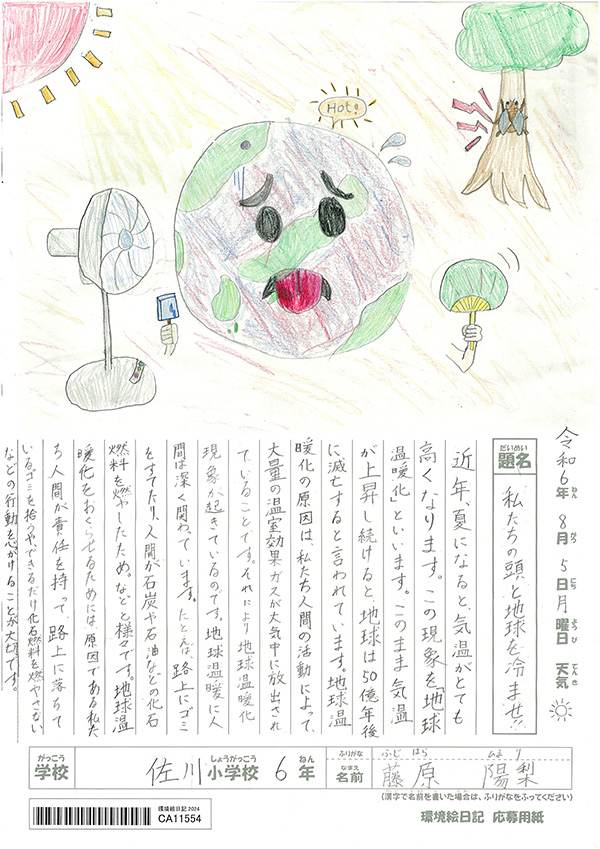 Hot!
令和6年 8月 5日 月曜日 天気
ねん がつ にち ようび てんき
だいめい
題名
私たちの頭と地球を冷ませ!!
近年、夏になると、気温がとても
高くなります。この現象を「地球
温暖化」といいます。このまま気温
が上昇し続けると、地球は50億年後
に滅亡すると言われています。地球温
暖化の原因は、私たち人間の活動によって、
大量の温室効果ガスが大気中に放出され
ていることです。それにより地球温暖化
現象が起きているのです。地球温暖に人
間は深く関わっています。たとえば、路上にゴミ
をすてたり、人間が石炭や石油などの化石
燃料を燃やしたため。などと様々です。地球温
暖化をおくらせるためには、原因である私た
ち人間が責任を持って、路上に落ちて
いるゴミを拾うや、できるだけ化石燃料を燃やさない
などの行動を心がけることが大切です。
がっこう
学校
佐川 小学校 6年
しょうがっこう ねん
ふりがな ふじ はら ひま り
なまえ
名前 藤原 陽梨
(漢字で名前を書いた場合は、ふりがなをふってください)
環境絵日記 2024
CA11554
環境絵日記 応募用紙